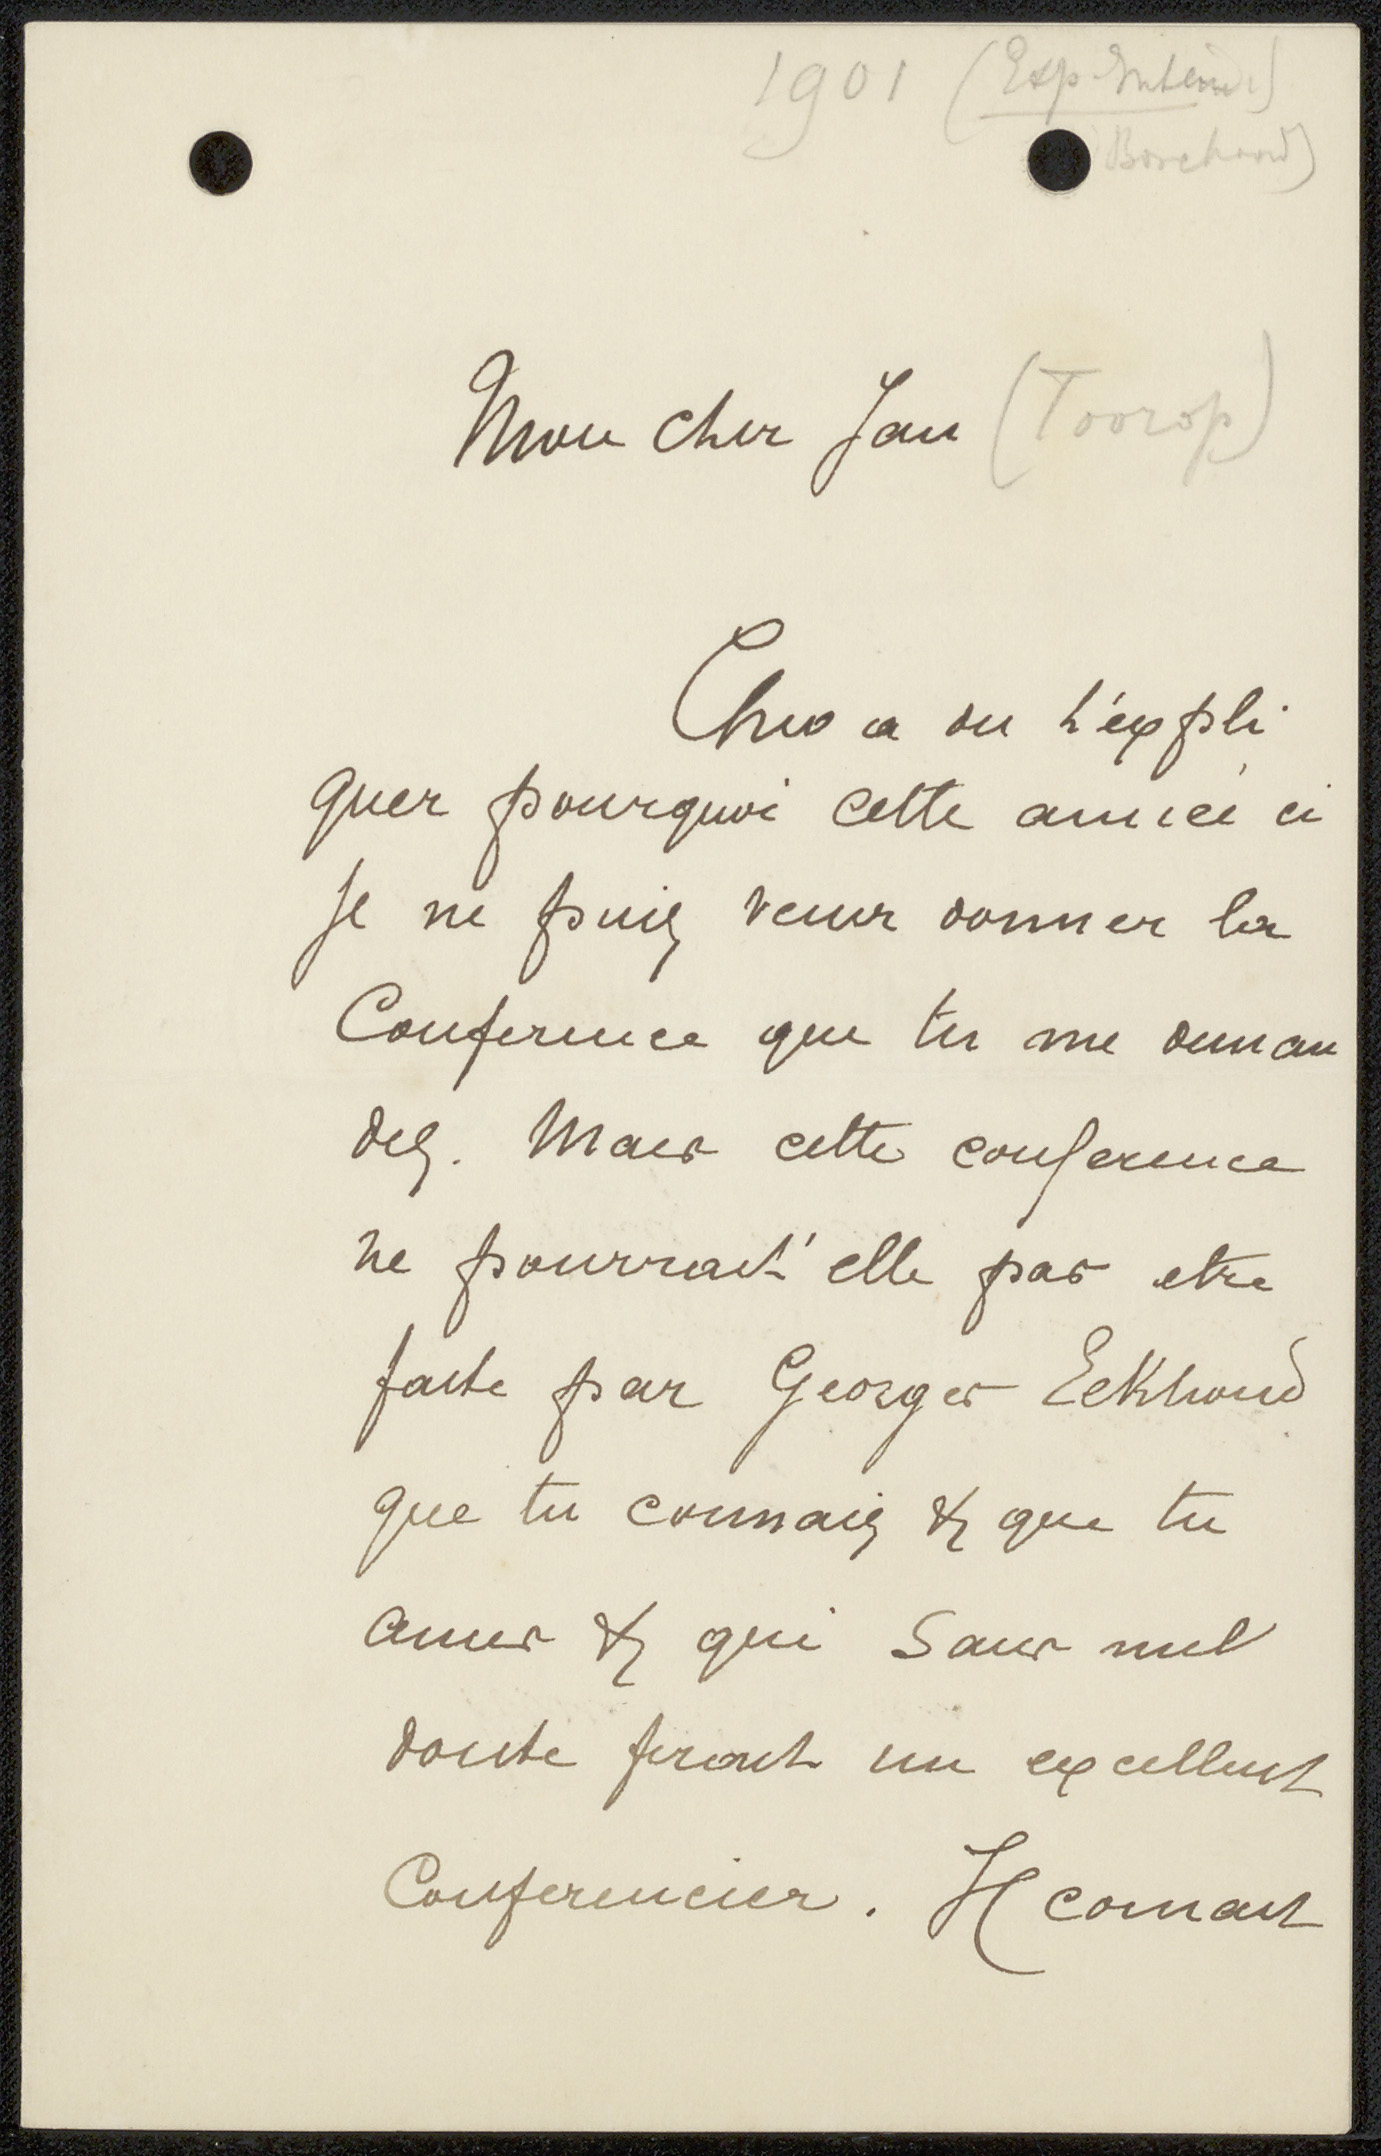 1901 (Exp
Mon cher Jan (Toorop)
Théo a du t'expli
quer pourquoi cette année ci
je ne puis venir donner la
Conference que tu me deman
des. Mais cette conference
ne pourrait elle pas etre
faite par Georges Eekhoud
que tu connais & que tu
aimes & qui sans nul
doute ferait un excellent
Conferencier. Il connait